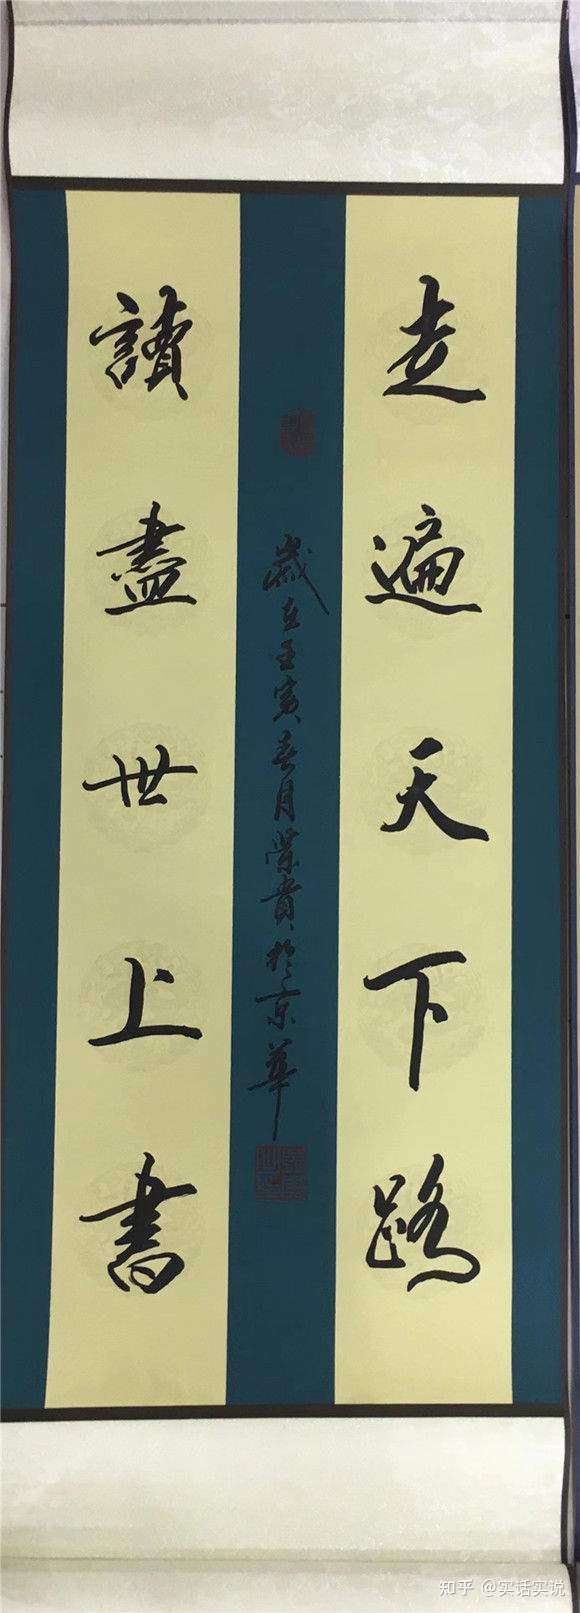 走遍天下路
讀盡世上書
歲在壬寅春月榮貴於京華
知乎 @实话实说